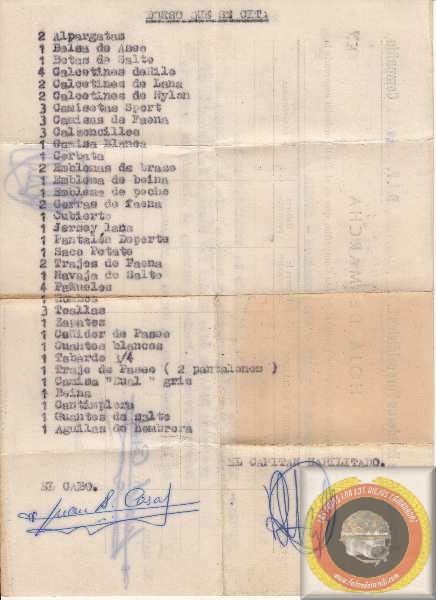 DORSO QUE SE CITA
2 Alpargatas
1 Bolsa de Aseo
1 Botas de Salto
4 Calcetines de Hilo
2 Calcetines de Lana
2 Calcetines de Nylan
3 Camisetas Sport
3 Camisas de Faena
3 Calzoncillos
1 Camisa Blanca
1 Corbata
2 Emblemas de brazo
1 Emblema de boina
1 Emblema de pecho
2 Gorras de faena
1 Cubierto
1 Jersey lana
1 Pantalón Deporte
1 Saco Petate
2 Trajes de Faena
1 Navaja de Salto
4 Pañuelos
3 Toallas
1 Zapatos
1 Ceñidor de Paseo
1 Guantes blancos
1 Tabardo 3/4
1 Traje de Paseo ( 2 pantalones )
1 Camisa "Dual " gris
1 Boina
1 Cantimplora
1 Guantes de salto
1 Aguilas de hombrera
EL CAPITAN HABILITADO.
EL CABO.
www.fotosdelamili.com